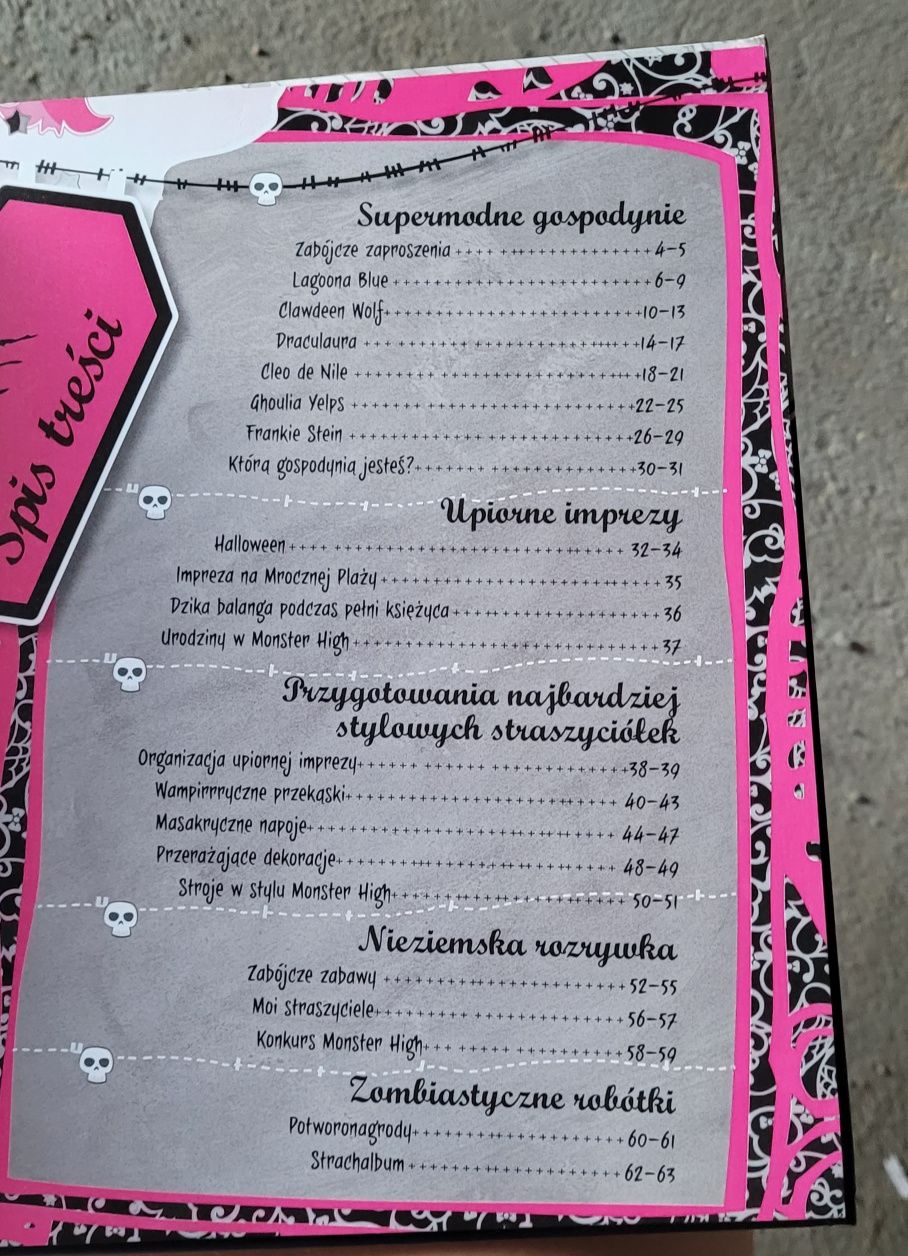 Spis treści
Supermodne gospodynie
Zabójcze zaproszenia 4-5
Lagoona Blue 6-9
Clawdeen Wolf 10-13
Draculaura 14-17
Cleo de Nile 18-21
Ghoulia Yelps 22-25
Frankie Stein 26-29
Którą gospodynią jesteś? 30-31
Upiorne imprezy
Halloween 32-34
Impreza na Mrocznej Plaży 35
Dzika balanga podczas pełni księżyca 36
Urodziny w Monster High 37
Przygotowania najbardziej
stylowych straszyciółek
Organizacja upiornej imprezy 38-39
Wampirrryczne przekąski 40-43
Masakryczne napoje 44-47
Przerażające dekoracje 48-49
Stroje w stylu Monster High 50-51
Nieziemska rozrywka
Zabójcze zabawy 52-55
Moi straszyciele 56-57
Konkurs Monster High 58-59
Zombiastyczne robótki
Potworonagrody 60-61
Strachalbum 62-63